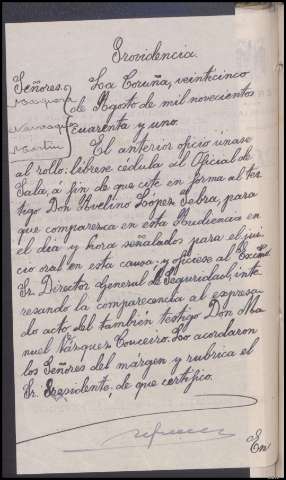 Providencia.
Señores. La Coruña, veinticinco
de Agosto de mil novecientos
cuarenta y uno.
Martín
El anterior oficio únase
al rollo: líbrese cédula al Oficial de
Sala, á fin de que cite en forma al tes-
tigo Don Avelino López Sebra, para
que comparezca en esta Audiencia en
el dia y hora señalados para el jui-
cio oral en esta causa, y ofíciese al Excmo.
Sr. Director General de Seguridad, inte-
resando la comparecencia al expresa-
do acto del tambien testigo Don Ma-
nuel Vázquez Couceiro. Lo acordaron
los Señores del márgen y rubrica el
Sr. Presidente, de que certifico.
En